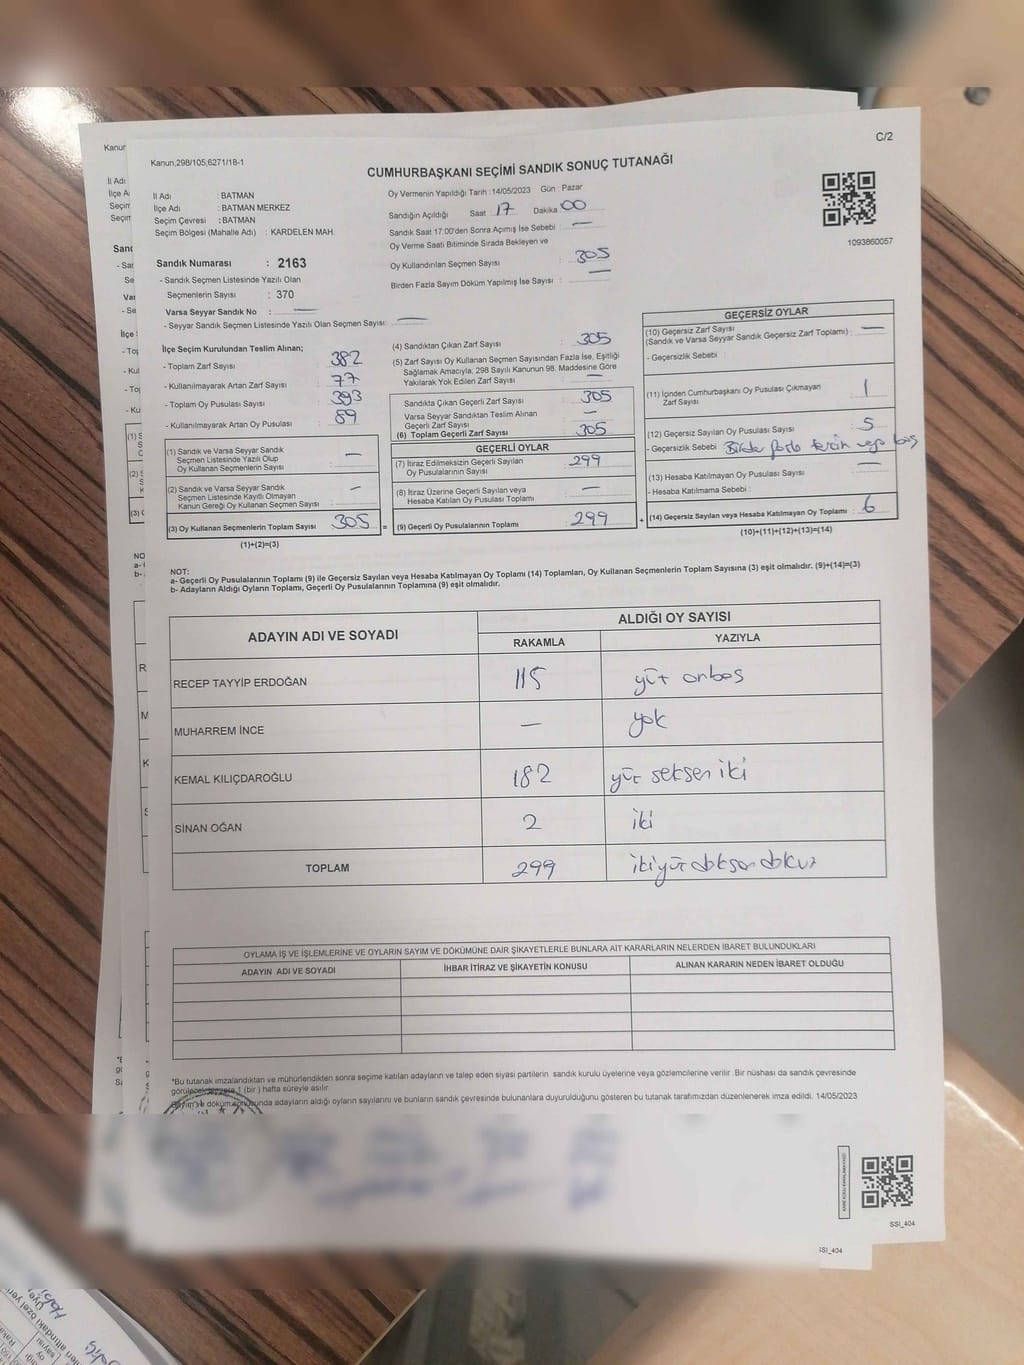 C/2
Kanun,298/105,6271/18-1
CUMHURBAŞKANI SEÇİMİ SANDIK SONUÇ TUTANAĞI
İl Adı : BATMAN
İlçe Adı : BATMAN MERKEZ
Seçim Çevresi : BATMAN
Seçim Bölgesi (Mahalle Adı) : KARDELEN MAH.
Oy Vermenin Yapıldığı Tarih :14/05/2023 Gün : Pazar
Sandığın Açıldığı Saat : 17 Dakika : 00
Sandık Saat 17:00'den Sonra Açımış İse Sebebi : —
Oy Verme Saati Bitiminde Sırada Bekleyen ve
Oy Kullandırılan Seçmen Sayısı : 305
Birden Fazla Sayım Döküm Yapılmış İse Sayısı : —
1093860057
Sandık Numarası : 2163
- Sandık Seçmen Listesinde Yazılı Olan
Seçmenlerin Sayısı : 370
Varsa Seyyar Sandık No : —
- Seyyar Sandık Seçmen Listesinde Yazılı Olan Seçmen Sayısı: —
İlçe Seçim Kurulundan Teslim Alınan;
- Toplam Zarf Sayısı : 382
- Kullanılmayarak Artan Zarf Sayısı : 77
- Toplam Oy Pusulası Sayısı : 393
- Kullanılmayarak Artan Oy Pusulası : 89
(1) Sandık ve Varsa Seyyar Sandık
Seçmen Listesinde Yazılı Olup
Oy Kullanan Seçmenlerin Sayısı : —
(2) Sandık ve Varsa Seyyar Sandık
Seçmen Listesinde Kayıtlı Olmayan
Kanun Gereği Oy Kullanan Seçmen Sayısı : —
(3) Oy Kullanan Seçmenlerin Toplam Sayısı : 305 =
(1)+(2)=(3)
(4) Sandıktan Çıkan Zarf Sayısı : 305
(5) Zarf Sayısı Oy Kullanan Seçmen Sayısından Fazla İse, Eşitliği
Sağlamak Amacıyla; 298 Sayılı Kanunun 98. Maddesine Göre
Yakılarak Yok Edilen Zarf Sayısı : —
Sandıkta Çıkan Geçerli Zarf Sayısı : 305
Varsa Seyyar Sandıktan Teslim Alınan
Geçerli Zarf Sayısı : —
(6) Toplam Geçerli Zarf Sayısı : 305
GEÇERLİ OYLAR
(7) İtiraz Edilmeksizin Geçerli Sayılan
Oy Pusulalarının Sayısı : 299
(8) İtiraz Üzerine Geçerli Sayılan veya
Hesaba Katılan Oy Pusulası Toplamı : —
(9) Geçerli Oy Pusulalarının Toplamı : 299 +
GEÇERSİZ OYLAR
(10) Geçersiz Zarf Sayısı
(Sandık ve Varsa Seyyar Sandık Geçersiz Zarf Toplamı) : —
- Geçersizlik Sebebi :
(11) İçinden Cumhurbaşkanı Oy Pusulası Çıkmayan
Zarf Sayısı : 1
(12) Geçersiz Sayılan Oy Pusulası Sayısı : 5
- Geçersizlik Sebebi : Birden fazla tercih veya boş
(13) Hesaba Katılmayan Oy Pusulası Sayısı : —
- Hesaba Katılmama Sebebi :
(14) Geçersiz Sayılan veya Hesaba Katılmayan Oy Toplamı : 6
(10)+(11)+(12)+(13)=(14)
NOT:
a- Geçerli Oy Pusulalarının Toplamı (9) ile Geçersiz Sayılan veya Hesaba Katılmayan Oy Toplamı (14) Toplamları, Oy Kullanan Seçmenlerin Toplam Sayısına (3) eşit olmalıdır. (9)+(14)=(3)
b- Adayların Aldığı Oyların Toplamı, Geçerli Oy Pusulalarının Toplamına (9) eşit olmalıdır.
ADAYIN ADI VE SOYADI
ALDIĞI OY SAYISI
RAKAMLA YAZIYLA
RECEP TAYYİP ERDOĞAN 115 yüz onbeş
MUHARREM İNCE — yok
KEMAL KILIÇDAROĞLU 182 yüz seksen iki
SİNAN OĞAN 2 iki
TOPLAM 299 ikiyüz doksan dokuz
OYLAMA İŞ VE İŞLEMLERİNE VE OYLARIN SAYIM VE DÖKÜMÜNE DAİR ŞİKAYETLERLE BUNLARA AİT KARARLARIN NELERDEN İBARET BULUNDUKLARI
ADAYIN ADI VE SOYADI İHBAR İTİRAZ VE ŞİKAYETİN KONUSU ALINAN KARARIN NEDEN İBARET OLDUĞU
*Bu tutanak imzalandıktan ve mühürlendikten sonra seçime katılan adayların ve talep eden siyasi partilerin sandık kurulu üyelerine veya gözlemcilerine verilir .Bir nüshası da sandık çevresinde
1 (bir ) hafta süreyle asılır.
adayların aldığı oyların sayılarını ve bunların sandık çevresinde bulunanlara duyurulduğunu gösteren bu tutanak tarafımızdan düzenlenerek imza edildi. 14/05/2023
SSI_404
SSI_404